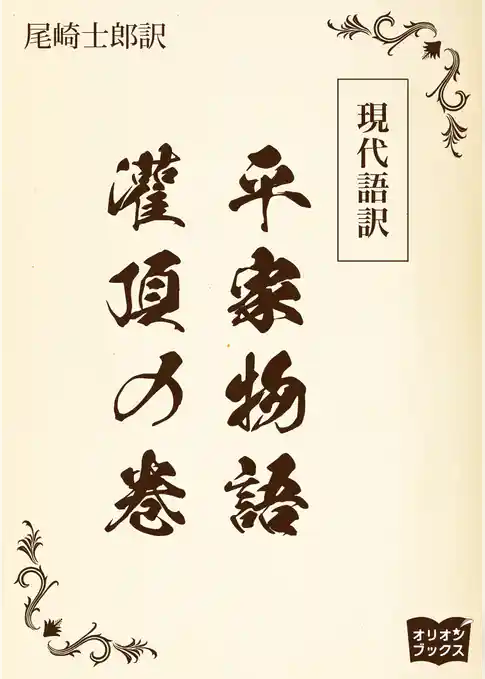 尾崎士郎訳
現代語訳
平家物語
灌頂の巻
オリオン
ブックス